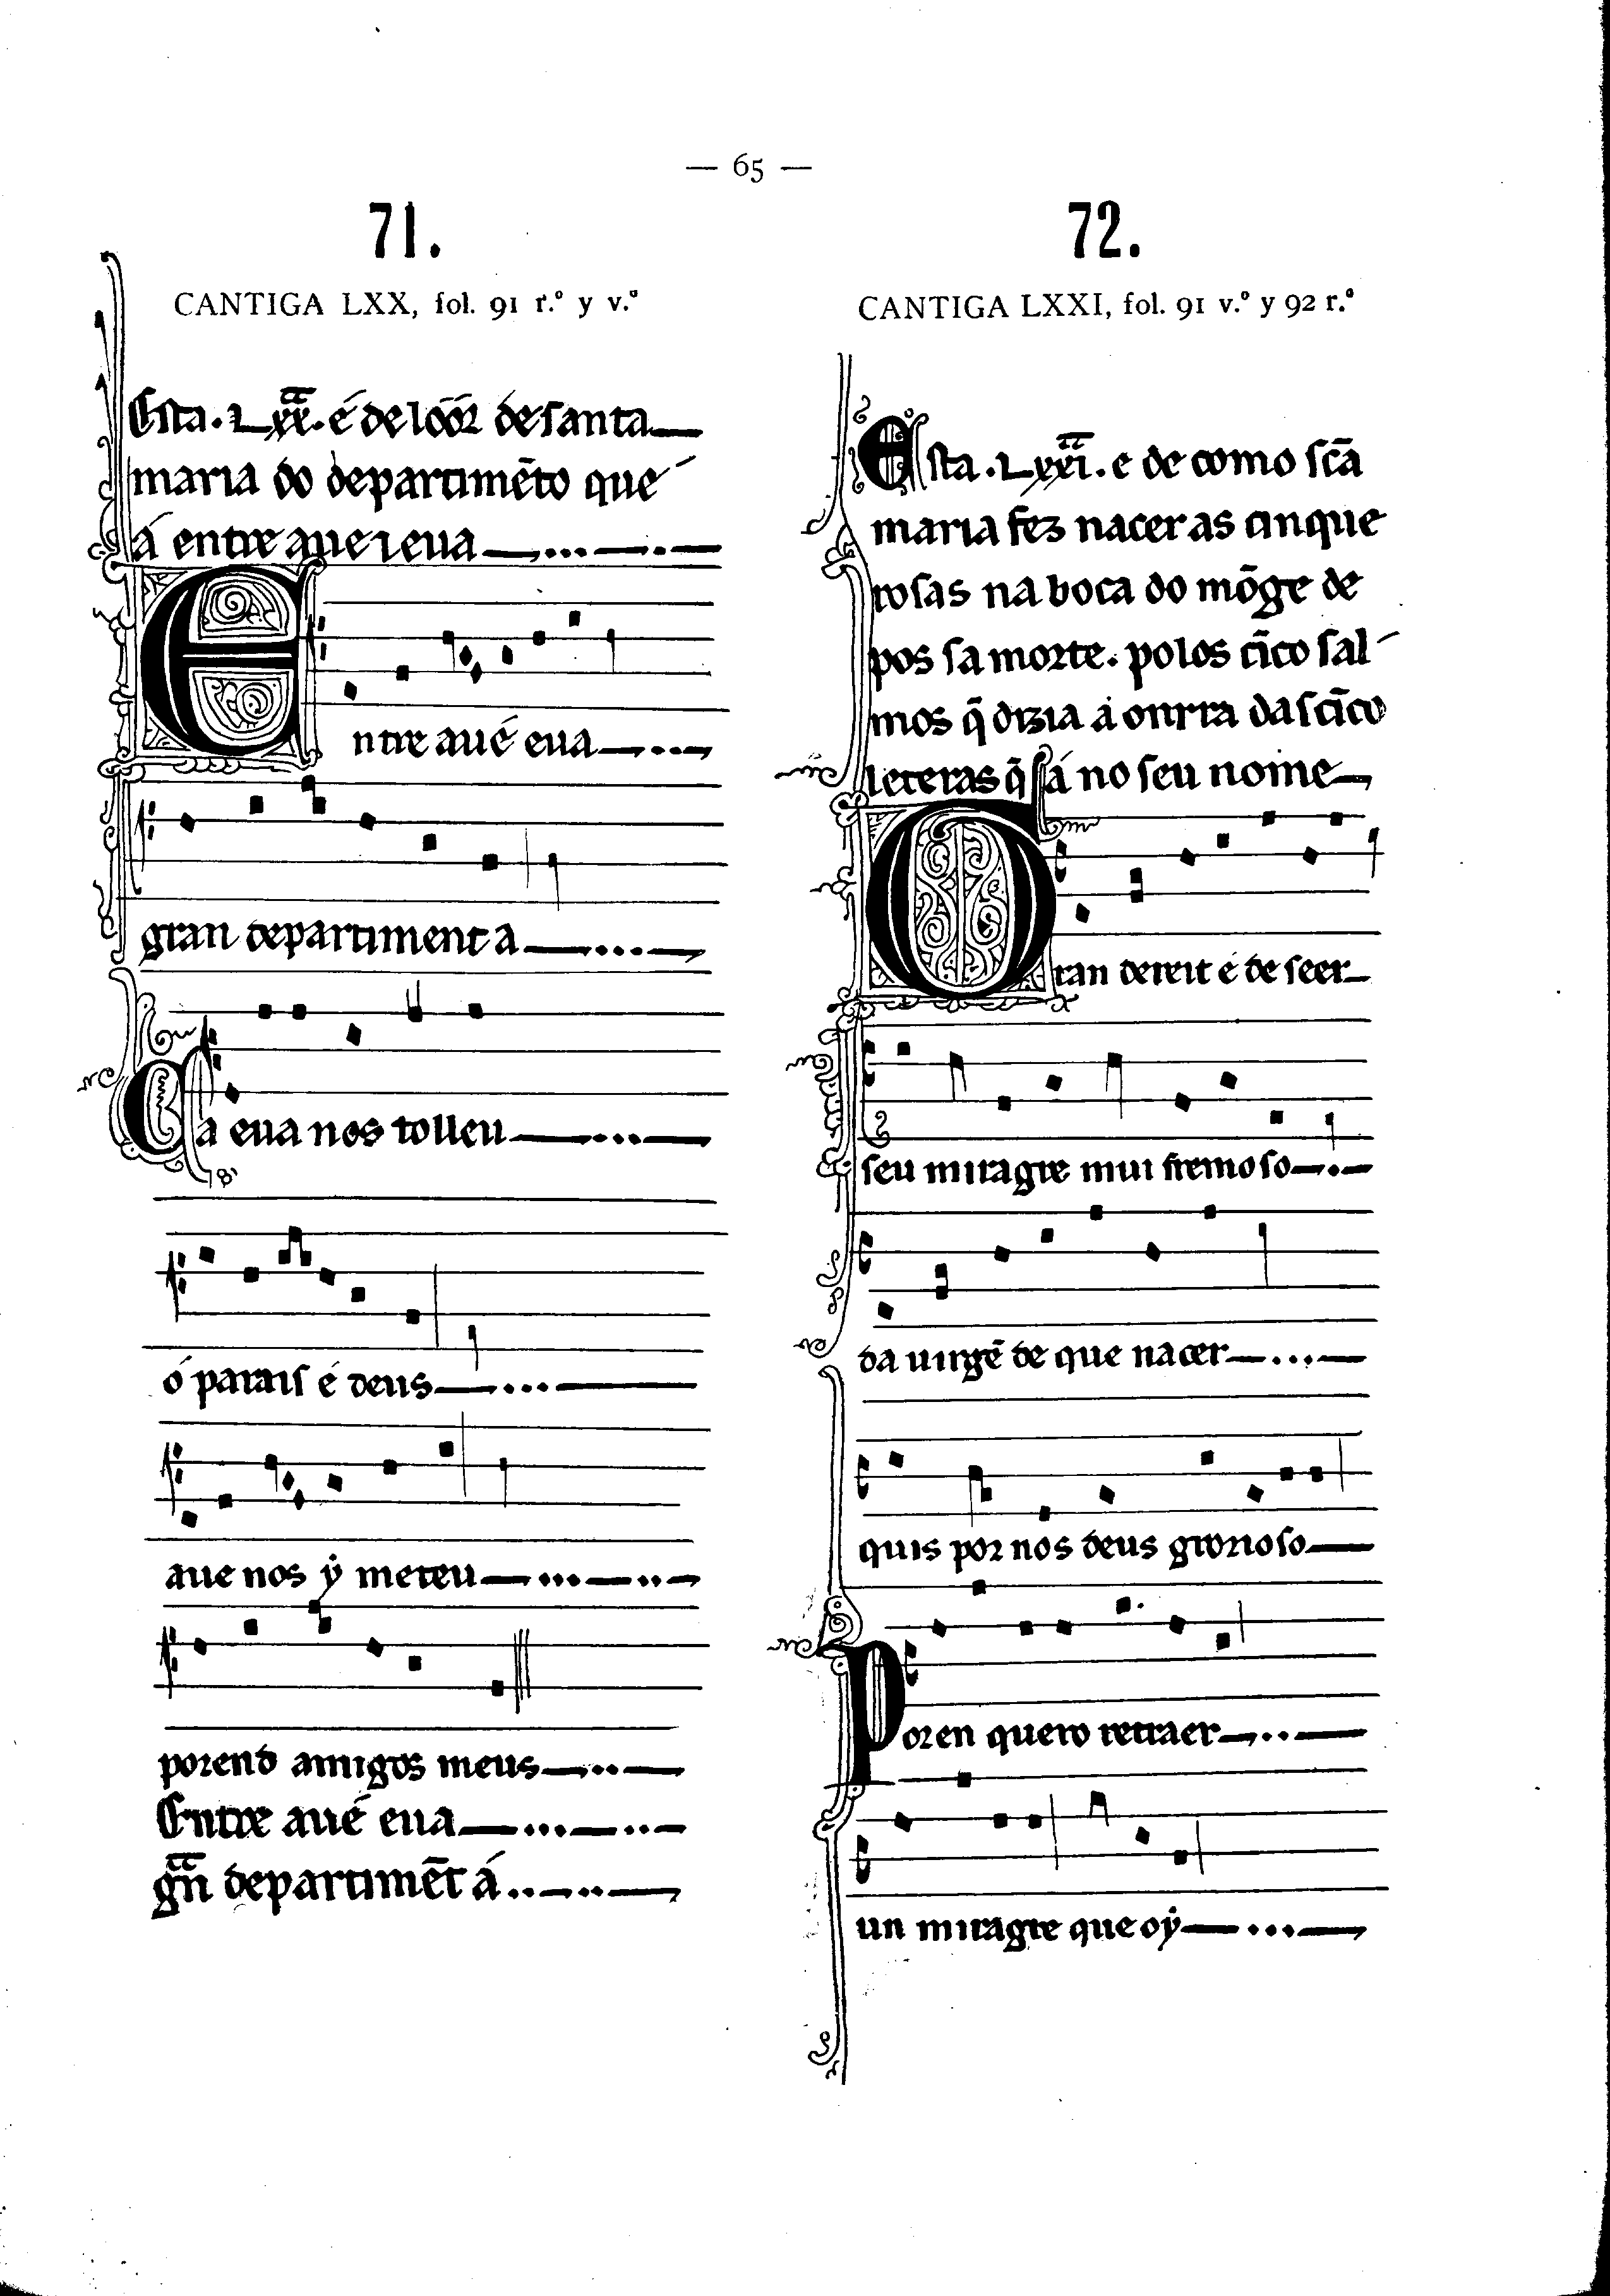 — 65 —
71.
CANTIGA LXX, fol. 91 r.º y v.º
Esta . Lxx̄. é de lóór de santa
maria do departimẽto que
á entre aue ⁊ eua
Entre aué eua
gran departiment a
Ca eua nos tolleu
ó parais é deus
aue nos ẏ meteu
porend amigos meus
Entre aué eua
gñ departimẽt á
72.
CANTIGA LXXI, fol. 91 v.º y 92 r.º
Esta . Lxxī . e de como sc̃a
maria fez nacer as cinque
rosas na boca do mõge de
pos sa morte . polos cĩco sal
mos q̃ dizia á onrra das cĩco
leteras q̃ á no seu nome
Gran dereit é de seer
seu miragre mui fremoso
da uirgẽ de que nacer
quis por nos deus grorioso
Poren quero retraer
un miragre que oẏ